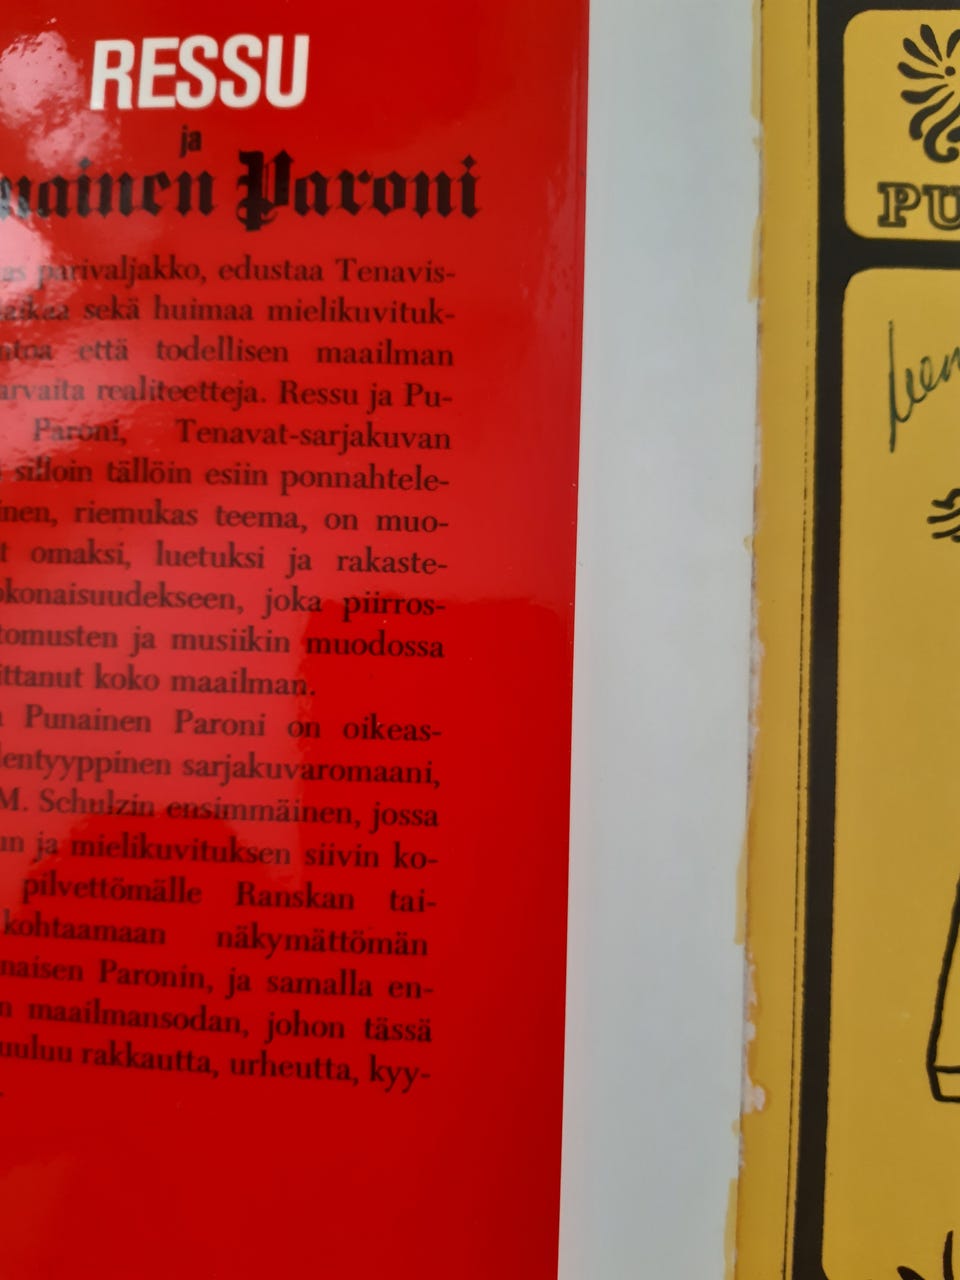 RESSU
ja
Paroni
parivaljakko, edustaa Tenavis-
sekä huimaa mielikuvituk-
että todellisen maailman
realiteetteja. Ressu ja Pu-
Paroni, Tenavat-sarjakuvan
silloin tällöin esiin ponnahtele-
riemukas teema, on muo-
omaksi, luetuksi ja rakaste-
joka piirros-
ja musiikin muodossa
koko maailman.
Punainen Paroni on oikeas-
sarjakuvaromaani,
M. Schulzin ensimmäinen, jossa
ja mielikuvituksen siivin ko-
pilvettömälle Ranskan tai-
kohtaamaan näkymättömän
Paronin, ja samalla en-
maailmansodan, johon tässä
rakkautta, urheutta, kyy-
PU